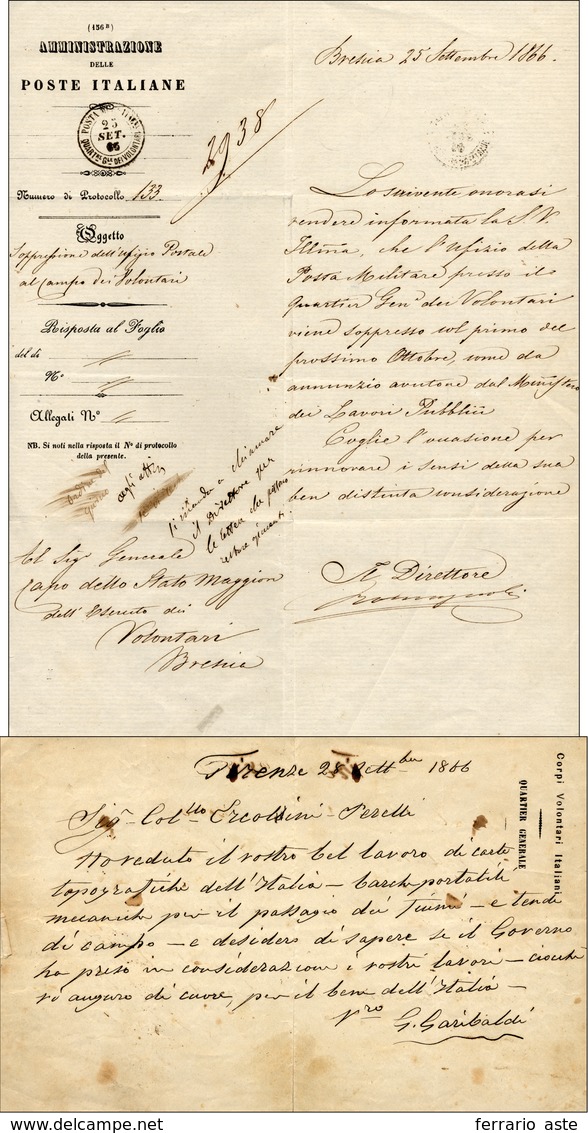 (156 B)
AMMINISTRAZIONE
DELLE
POSTE ITALIANE
25
SET.
66
2938
Numero di Protocollo 133.
Oggetto
Soppressione dell'Uffizio Postale
al Campo dei Volontari
Risposta al Foglio
del di
N.°
Allegati N.°
NB. Si noti nella risposta il N.° di protocollo
della presente.
cogli atti
si manda a chiamare
il Direttore per
le lettere che possano
Al Sig. Generale
Capo dello Stato Maggiore
dell'Esercito dei
Volontari
Brescia
Brescia 25 Settembre 1866.
Lo scrivente onorasi
rendere informata la S.V.
Illma, che l'Ufizio della
Posta Militare presso il
Quartier Gen.e dei Volontari
viene soppresso col primo del
prossimo Ottobre, come da
annunzio avutone dal Ministero
dei Lavori Pubblici
Coglie l'occasione per
rinnovare i sensi della sua
ben distinta considerazione
Il Direttore
Corpi Volontari Italiani
QUARTIER GENERALE
Firenze 28 Settbre 1866
Sigr Collo Ercolini-Perelli
Ho veduto il vostro bel lavoro di carte
topografiche dell'Italia – barche portatili
mecaniche per il passagio dei fiumi – e tende
di campo – e desidero di sapere se il Governo
ha preso in considerazione i vostri lavori – ciocchè
vi auguro di cuore, per il bene dell'Italia –
Vro
G. Garibaldi
ferrario aste